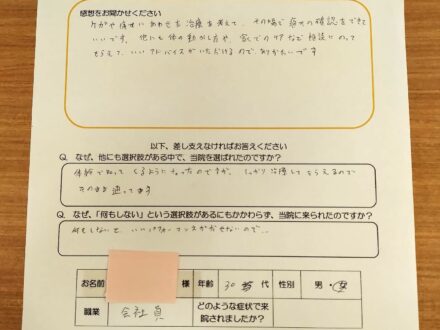 感想をお聞かせください
ケガや痛みにあわせた治療を考えて、その場で痛みの確認をできて
いいです。他にも体の動かし方や、家でのケアなど相談にのって
もらえて、いいアドバイスがいただけるので、ありがたいです
以下、差し支えなければお答えください
Q. なぜ、他にも選択肢がある中で、当院を選ばれたのですか?
体験で知って くるようになったのですが、しっかり治療してもらえるので
そのまま通ってます
Q. なぜ、「何もしない」という選択肢があるにもかかわらず、当院に来られたのですか?
何もしないと、いいパフォーマンスがだせないので..
お名前 様 年齢 30 代 性別 男・女
職業 会社員 どのような症状で来
院されましたか?